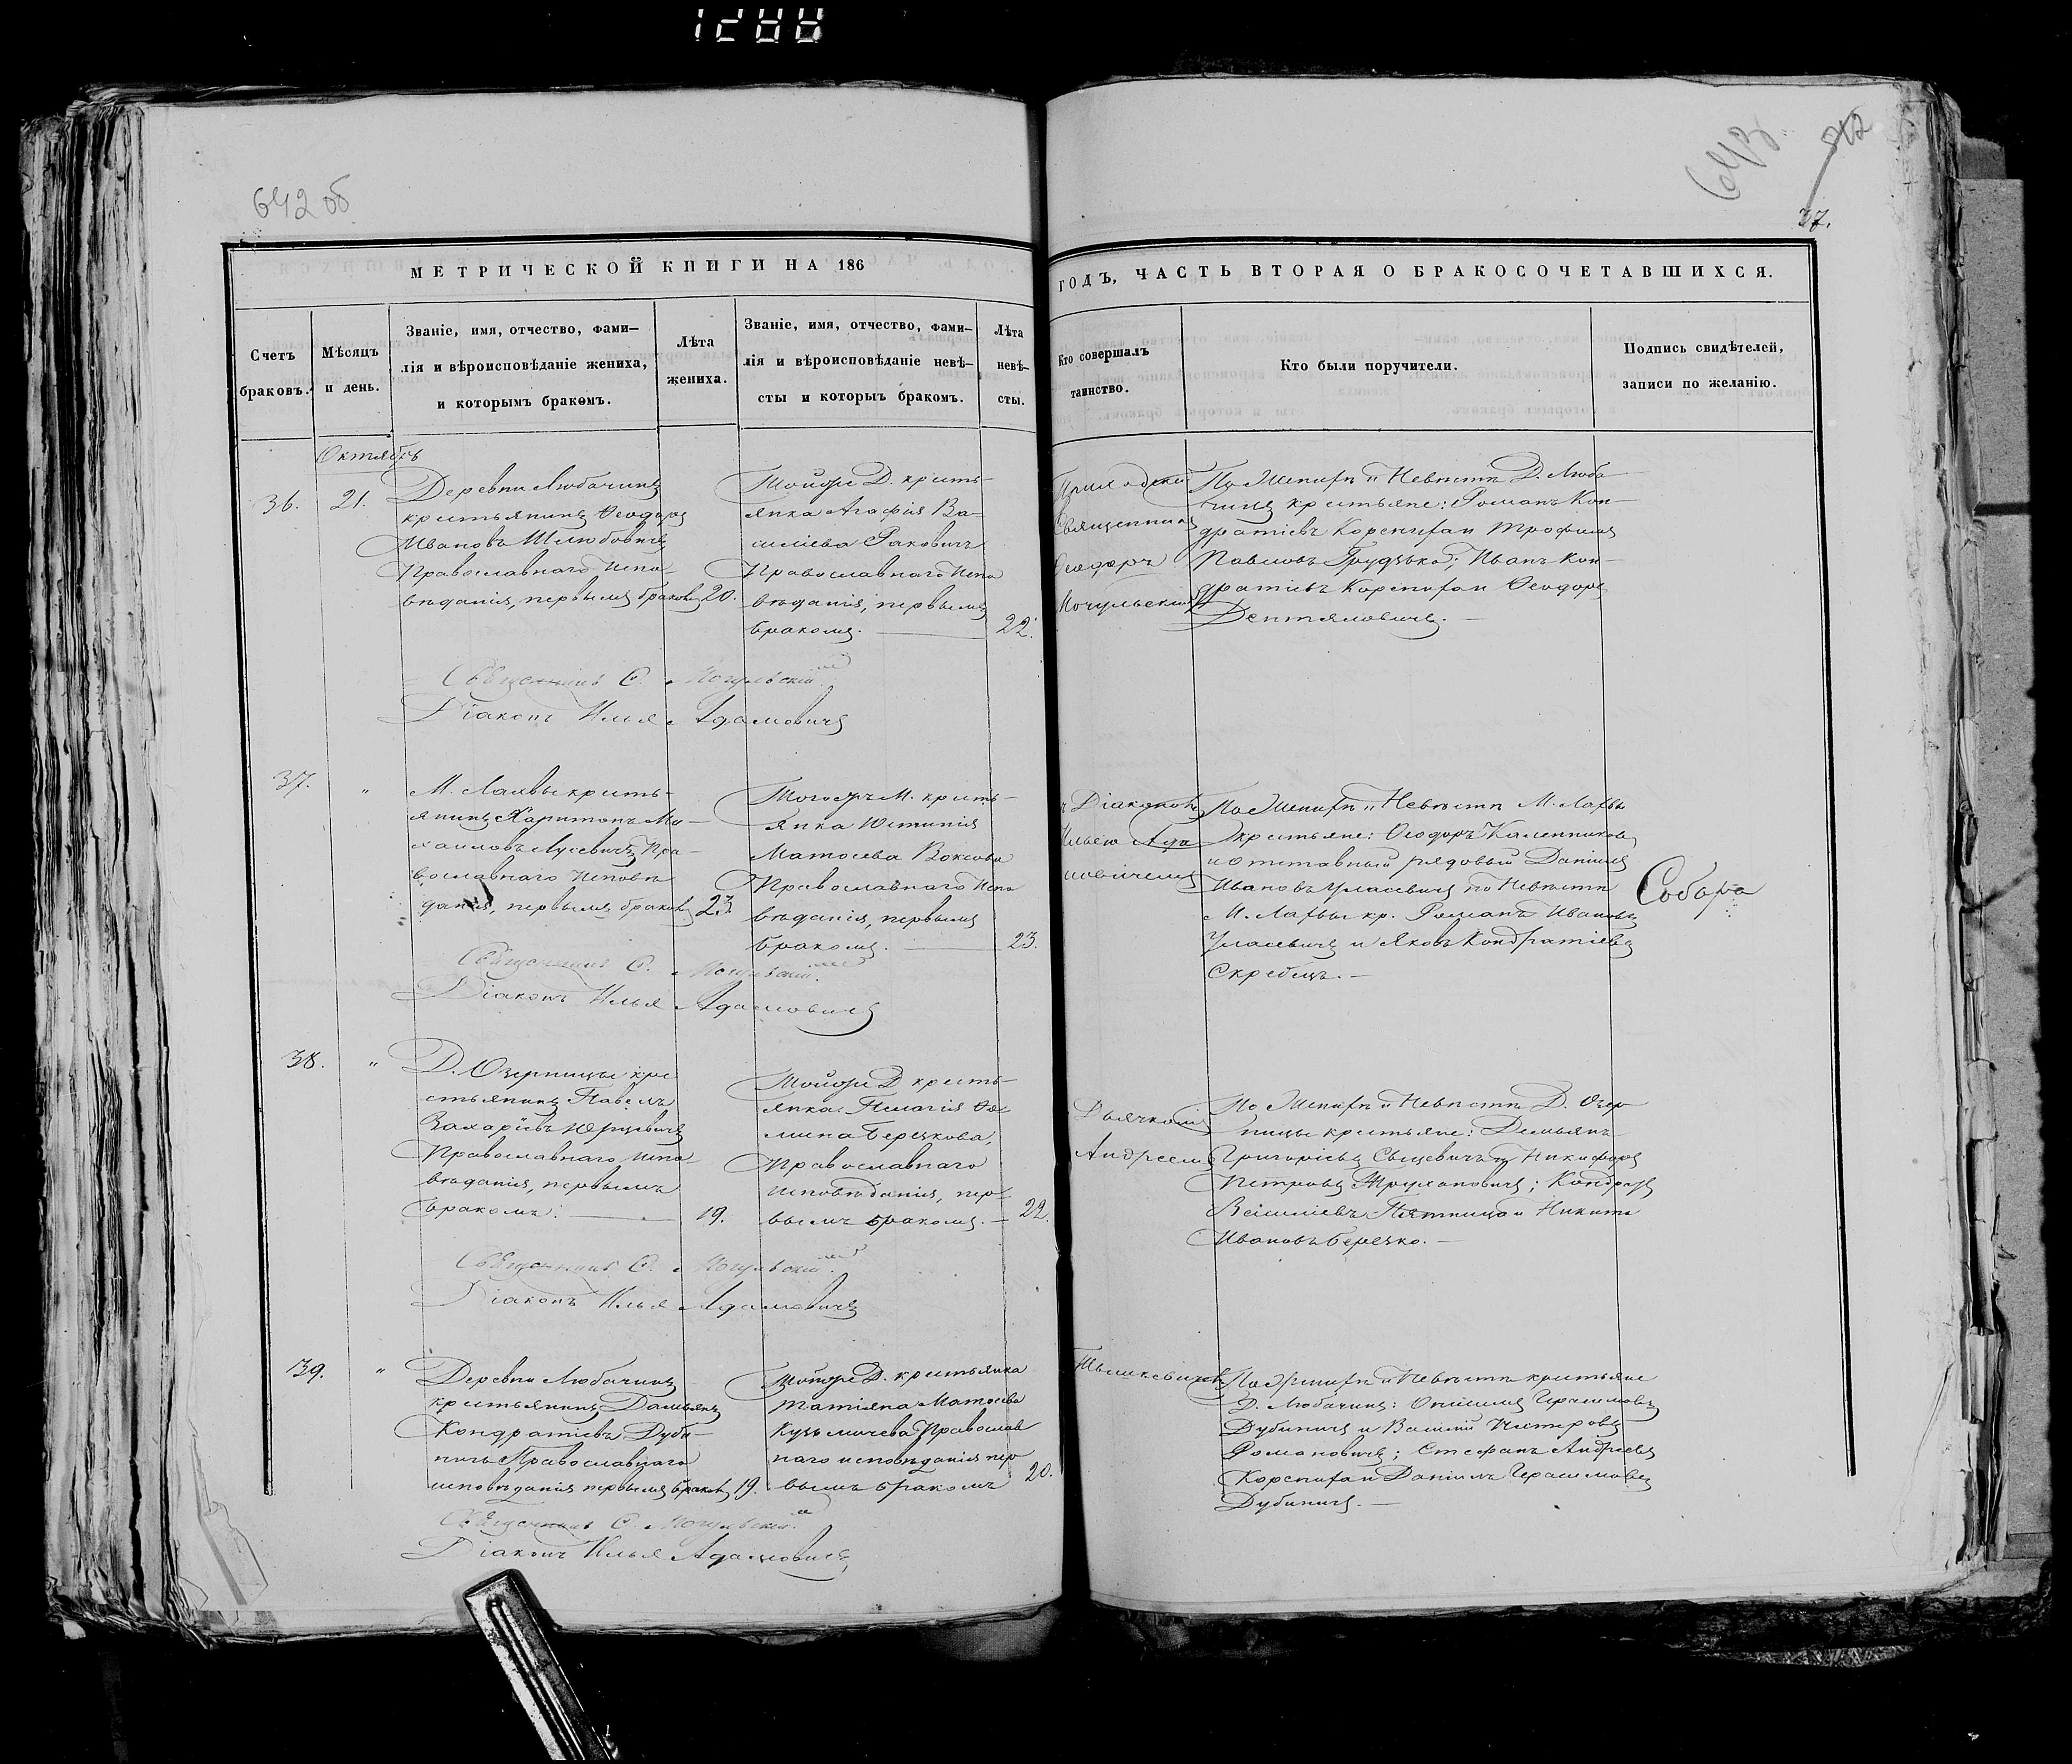 1288
642 об
643
37.
МЕТРИЧЕСКОЙ КНИГИ НА 186
ГОДЪ, ЧАСТЬ ВТОРАЯ О БРАКОСОЧЕТАВШИХСЯ.
Счетъ
браковъ.
Мѣсяцъ
и день.
Званіе, имя, отчество, фами-
лія и вѣроисповѣданіе жениха,
и которымъ бракомъ.
Лѣта
жениха.
Званіе, имя, отчество, фами-
лія и вѣроисповѣданіе невѣ-
сты и которыъ бракомъ.
Лѣта
невѣ-
сты.
Кто совершалъ
таинство.
Кто были поручители.
Подпись свидѣтелей,
записи по желанію.
Октябрь
36.
21.
Деревни Любачинъ
крестьянинъ Ѳеодоръ
Ивановъ Шлюбовичъ
Православнаго Испо
вѣданія, первымъ бракомъ
20.
Тойже Д. кресть-
янка Агафія Ва-
силіева Раковичъ
Православнаго Испо
вѣданія, первымъ
бракомъ.
22.
Приходскій
Священникъ
Ѳеодоръ
Мочульскій
По Женихѣ и Невѣстѣ Д. Люба
чинъ крестьяне: Романъ Кон-
дратіевъ Корсикъ и Трофимъ
Павловъ Грудько; Иванъ Кон-
дратіевъ Корсикъ и Ѳеодоръ
Священникъ Ѳ. Мочульскій
Діаконъ Илья Адамовичъ
37.
"
М. Лахвы кресть-
янинъ Харитонъ Ми-
хаиловъ Лусевичъ Пра-
вославнаго Исповѣ
данія, первымъ бракомъ
23.
Тогожъ М. кресть-
янка Юстинія
Матѳеева Воксова
Православнаго Испо
вѣданія, первымъ
бракомъ.
23.
Діакономъ
Ильею Ада
мовичемъ
По Женихѣ и Невѣстѣ М. Лахвы
крестьяне: Ѳеодоръ Каленников
и отставный рядовый Даніилъ
Ивановъ Уласевичъ по Невѣстѣ
М. Лахвы кр. Романъ Ивановъ
Уласевичъ и Яковъ Кондратіевъ
Скребецъ.
Собора
Священникъ Ѳ. Мочульскій
Діаконъ Илья Адамовичъ
38.
"
Д. Озерницы кре
стьянинъ Павелъ
Захаріевъ Юрцевичъ
Православнаго испо
вѣданія, первымъ
бракомъ.
19.
Тойже Д кресть-
янка Пелагія Ѳо
мина Берецкова,
Православнаго
исповѣданія, пер-
вымъ бракомъ.
22.
Дьячкомъ
Андреемъ
По Женихѣ и Невѣстѣ Д. Озер
ницы крестьяне: Демьянъ
Григоріевъ Сыцевичъ и Никифоръ
Петровъ Трухановичъ; Кондратъ
Василіевъ Пятница и Никита
Ивановъ Берецко.
Священникъ Ѳ. Мочульскій
Діаконъ Илья Адамовичъ
39.
"
Деревни Любачинъ
крестьянинъ Дамьянъ
Кондратіевъ Дуби-
ничъ Православнаго
исповѣданія первымъ бракомъ
19.
Тойже Д. крестьянка
Татіяна Матѳеева
Кузьмичева Православ
наго исповѣданія пер
вымъ бракомъ
20.
Тышкевичемъ
По Женихѣ и Невѣстѣ крестьяне
Д. Любачинъ: Онисимъ Герасимовъ
Дубиничъ и Василій
Романовичъ; Стефанъ Андреевъ
Корсикъ и Даніилъ Герасимовъ
Дубиничъ.
Священникъ Ѳ. Мочульскій
Діаконъ Илья Адамовичъ